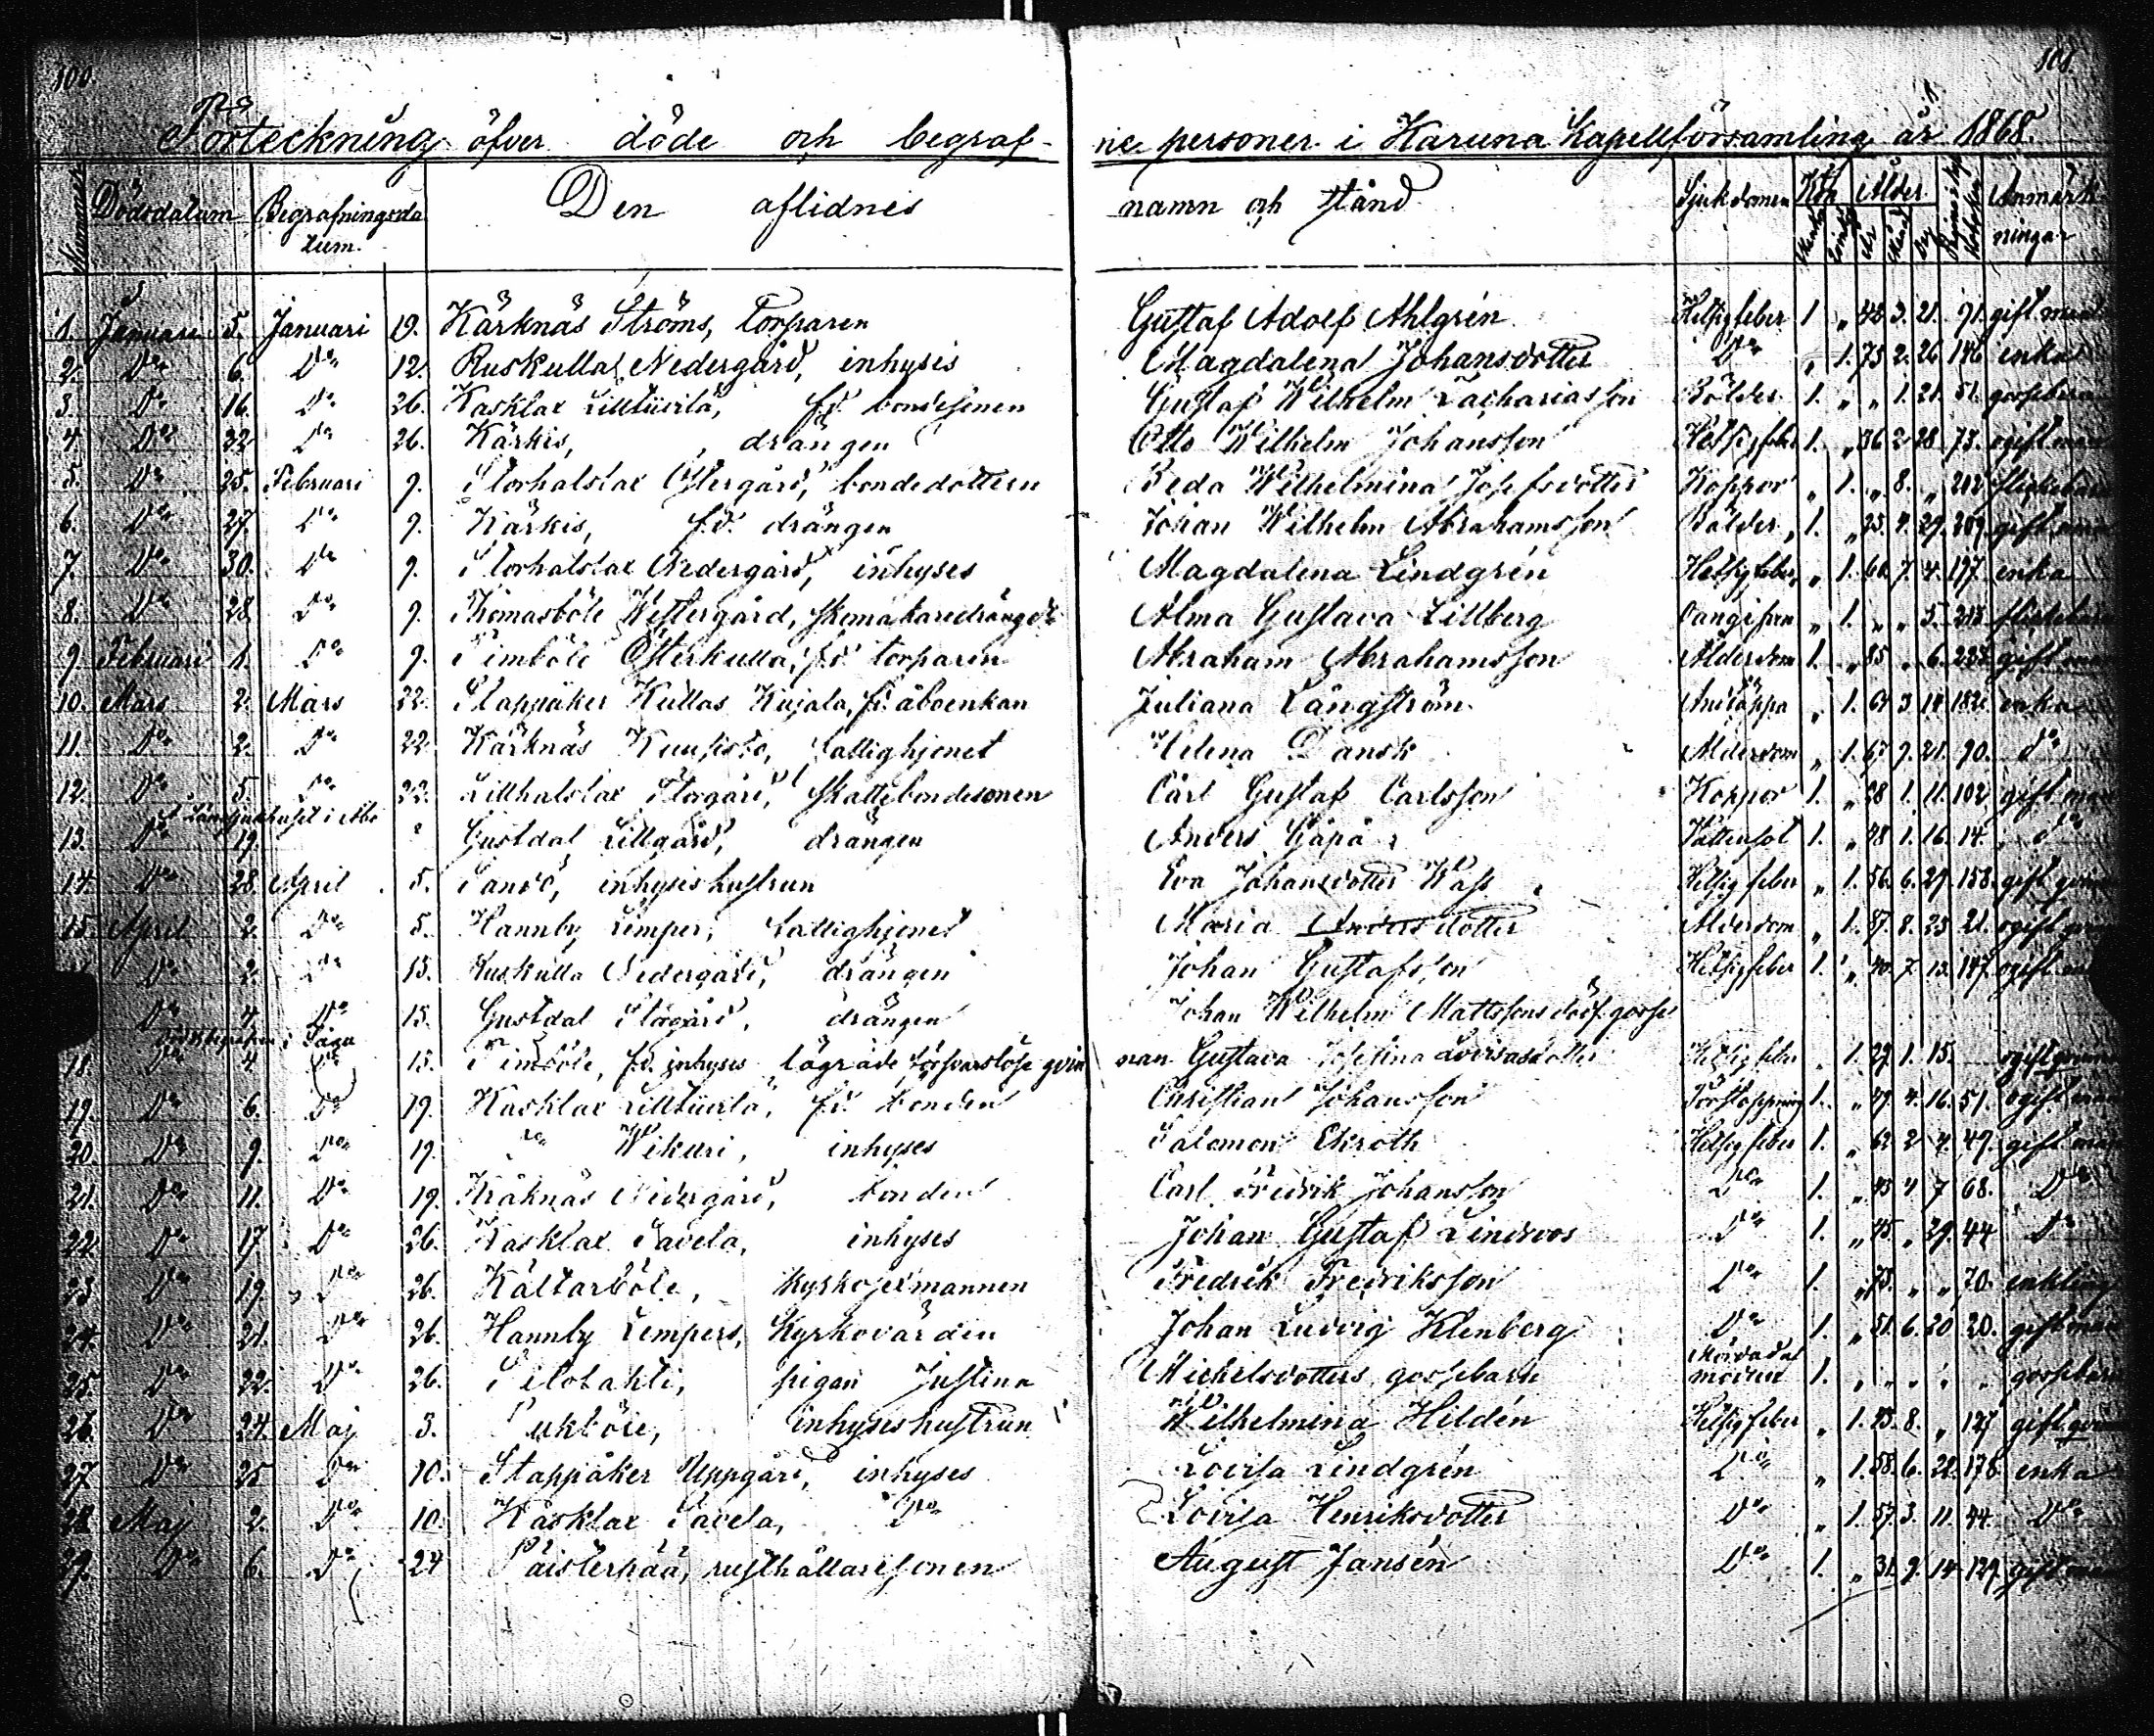 100.
101.
Förteckning öfver döde och begraf-ne personer i Karuna Kapellförsamling år 1868.
Nummer Dödsdatum Begrafningsdatum. Den aflidnes namn och stånd Sjukdomen Kön Ålder Anmärkningar
Mank. Qvink. År Månad Dag
1. Januari 5. Januari 19. Kärknäs Ströms, torparen Gustaf Adolf Ahlgrén Hetsig feber 1 " 48 3. 21. 91. gift man
2. Do 6. Do 12. Ruskulla Nedergård, inhysis Magdalena Johansdotter Do " 1. 73 2. 26 146 enka
3. Do 16. Do 26. Kasklax Lilltiurila, f.d. bondesonen Gustaf Wilhelm Zachariasson Bölder 1. " " 1. 21. 51. gossebarn
4. Do 22 Do 26. Kärkis, drängen Otto Wilhelm Johansson Hetsig feber 1. " 36 2 28. 73. ogift man
5. Do 25. Februari 9. Storhalslax Östergård, bondedottern Beda Wilhelmina Josefsdotter Koppor " 1. " 8. " 202 flickebarn
6. Do 27. Do 9. Kärkis, f.d. drängen Johan Wilhelm Abrahamsson Bölder 1. " 25. 4. 29. gift man
7. Do 30. Do 9. Storhalslax Nedergård, inhyses Magdalena Lindgrén Hetsig feber " 1. 60. 7. 4. 197 enka
8. Do 28 Do 9. Thomasböle Westergård, skomakaredrängs Alma Gustava Lillberg " 1. " " 5. flickebarn
9. Februari 1. Do 9. Timböle Österkulla, f.d. torparen Abraham Abrahamsson Ålderdom 1. " 85 " 6. gift man
10. Mars 2. Mars 22. Stappåker Kullas Kujala, f.d. åboenkan Juliana Långström Andtäppa " 1. 64 3 14 182. enka
11. Do 2. Do 22. Kärknäs Kuusisto, fattighjonet Helena Dansk Ålderdom " 1. 67 9. 21. 90. Do
12. Do 5. Do 22. Lillhalslax Storgård, skattebondesonen Carl Gustaf Carlsson Koppor 1. " 28 1. 11. 102 gift man
i Åbo
13. Do 19. Gustdal Lillgård, drängen Anders Gåpå Vattensot 1. " 48 1. 16. 14. Do
14. Do 28. April 5. Sandö, inhysishustrun Eva Johansdotter Wass Hetsig feber " 1. 56. 6. 29. 158. gift qvinna
15. April 2. Do 5. Hannby Lemper, fattighjonet Maria Andersdotter Ålderdom " 1. 87. 8. 23 21. ogift qvinna
Do 2. Do 15. Ruskulla Nedergård, drängen Johan Gustafsson Hetsig feber 1. " 40. 7. 13. 147. ogift man
Do 4. Do 15. Gustdal Storgård, drängen Johan Wilhelm Mattssons dödf. gosse
i Sagu
18. Do 4. Do 15. Timböle, f.d. inhyses lägrade, försvarslösa qvinnan Gustava Josefina Lovisasdotter Hetsig feber " 1. 29. 1. 15. ogift qvinna
19. Do 6. Do 19. Kasklax Lilltiurila, f.d. bonden Christian Johansson Förstoppning 1. " 49 4. 16. 51. ogift man
20 Do 9. Do 19. Do Wikuri, inhyses Salomon Ekroth Hetsig feber 1. " 62 2 4. 49. gift man
21. Do 11. Do 19. Kråknäs Nedergård, bonden Carl Fredrik Johansson Do 1. " 45 4 7 68. Do
22. Do 17 Do 26. Kasklax Savela, inhyses Johan Gustaf Lindroos Do 1. " 45 " 29. 44 Do
23 Do 19. Do 26. Kältarböle, kyrkosexmannen Fredrik Fredriksson Do 1. " 75. " " 70. enkling
24. Do 21. Do 26. Hannby Lempers, kyrkovärden Johan Ludvig Klenberg Do 1. " 51. 6. 20 20. gift man
25. Do 22. Do 26. Pilotahti, pigan Justina Michelsdotters gossebarn Mördad af modren 1. " " " " " gossebarn
26. Do 24. Maj 3. Pukböle, inhyseshustrun Wilhelmina Hildén Hetsig feber " 1. 45. 8. " 127 gift qvinna
27. Do 25 Do 10. Stappåker Uppgård, inhyses Lovisa Lindgrén Do " 1. 58. 6. 22. 178 enka
28. Maj 2. Do 10. Kasklax Savela, Do Lovisa Henriksdotter Do " 1. 57. 3. 11. 44. Do
29. Do 6. Do 24 Päisterpää, rusthållaresonen August Jansén Do 1. " 31. 9. 14. 129. gift man